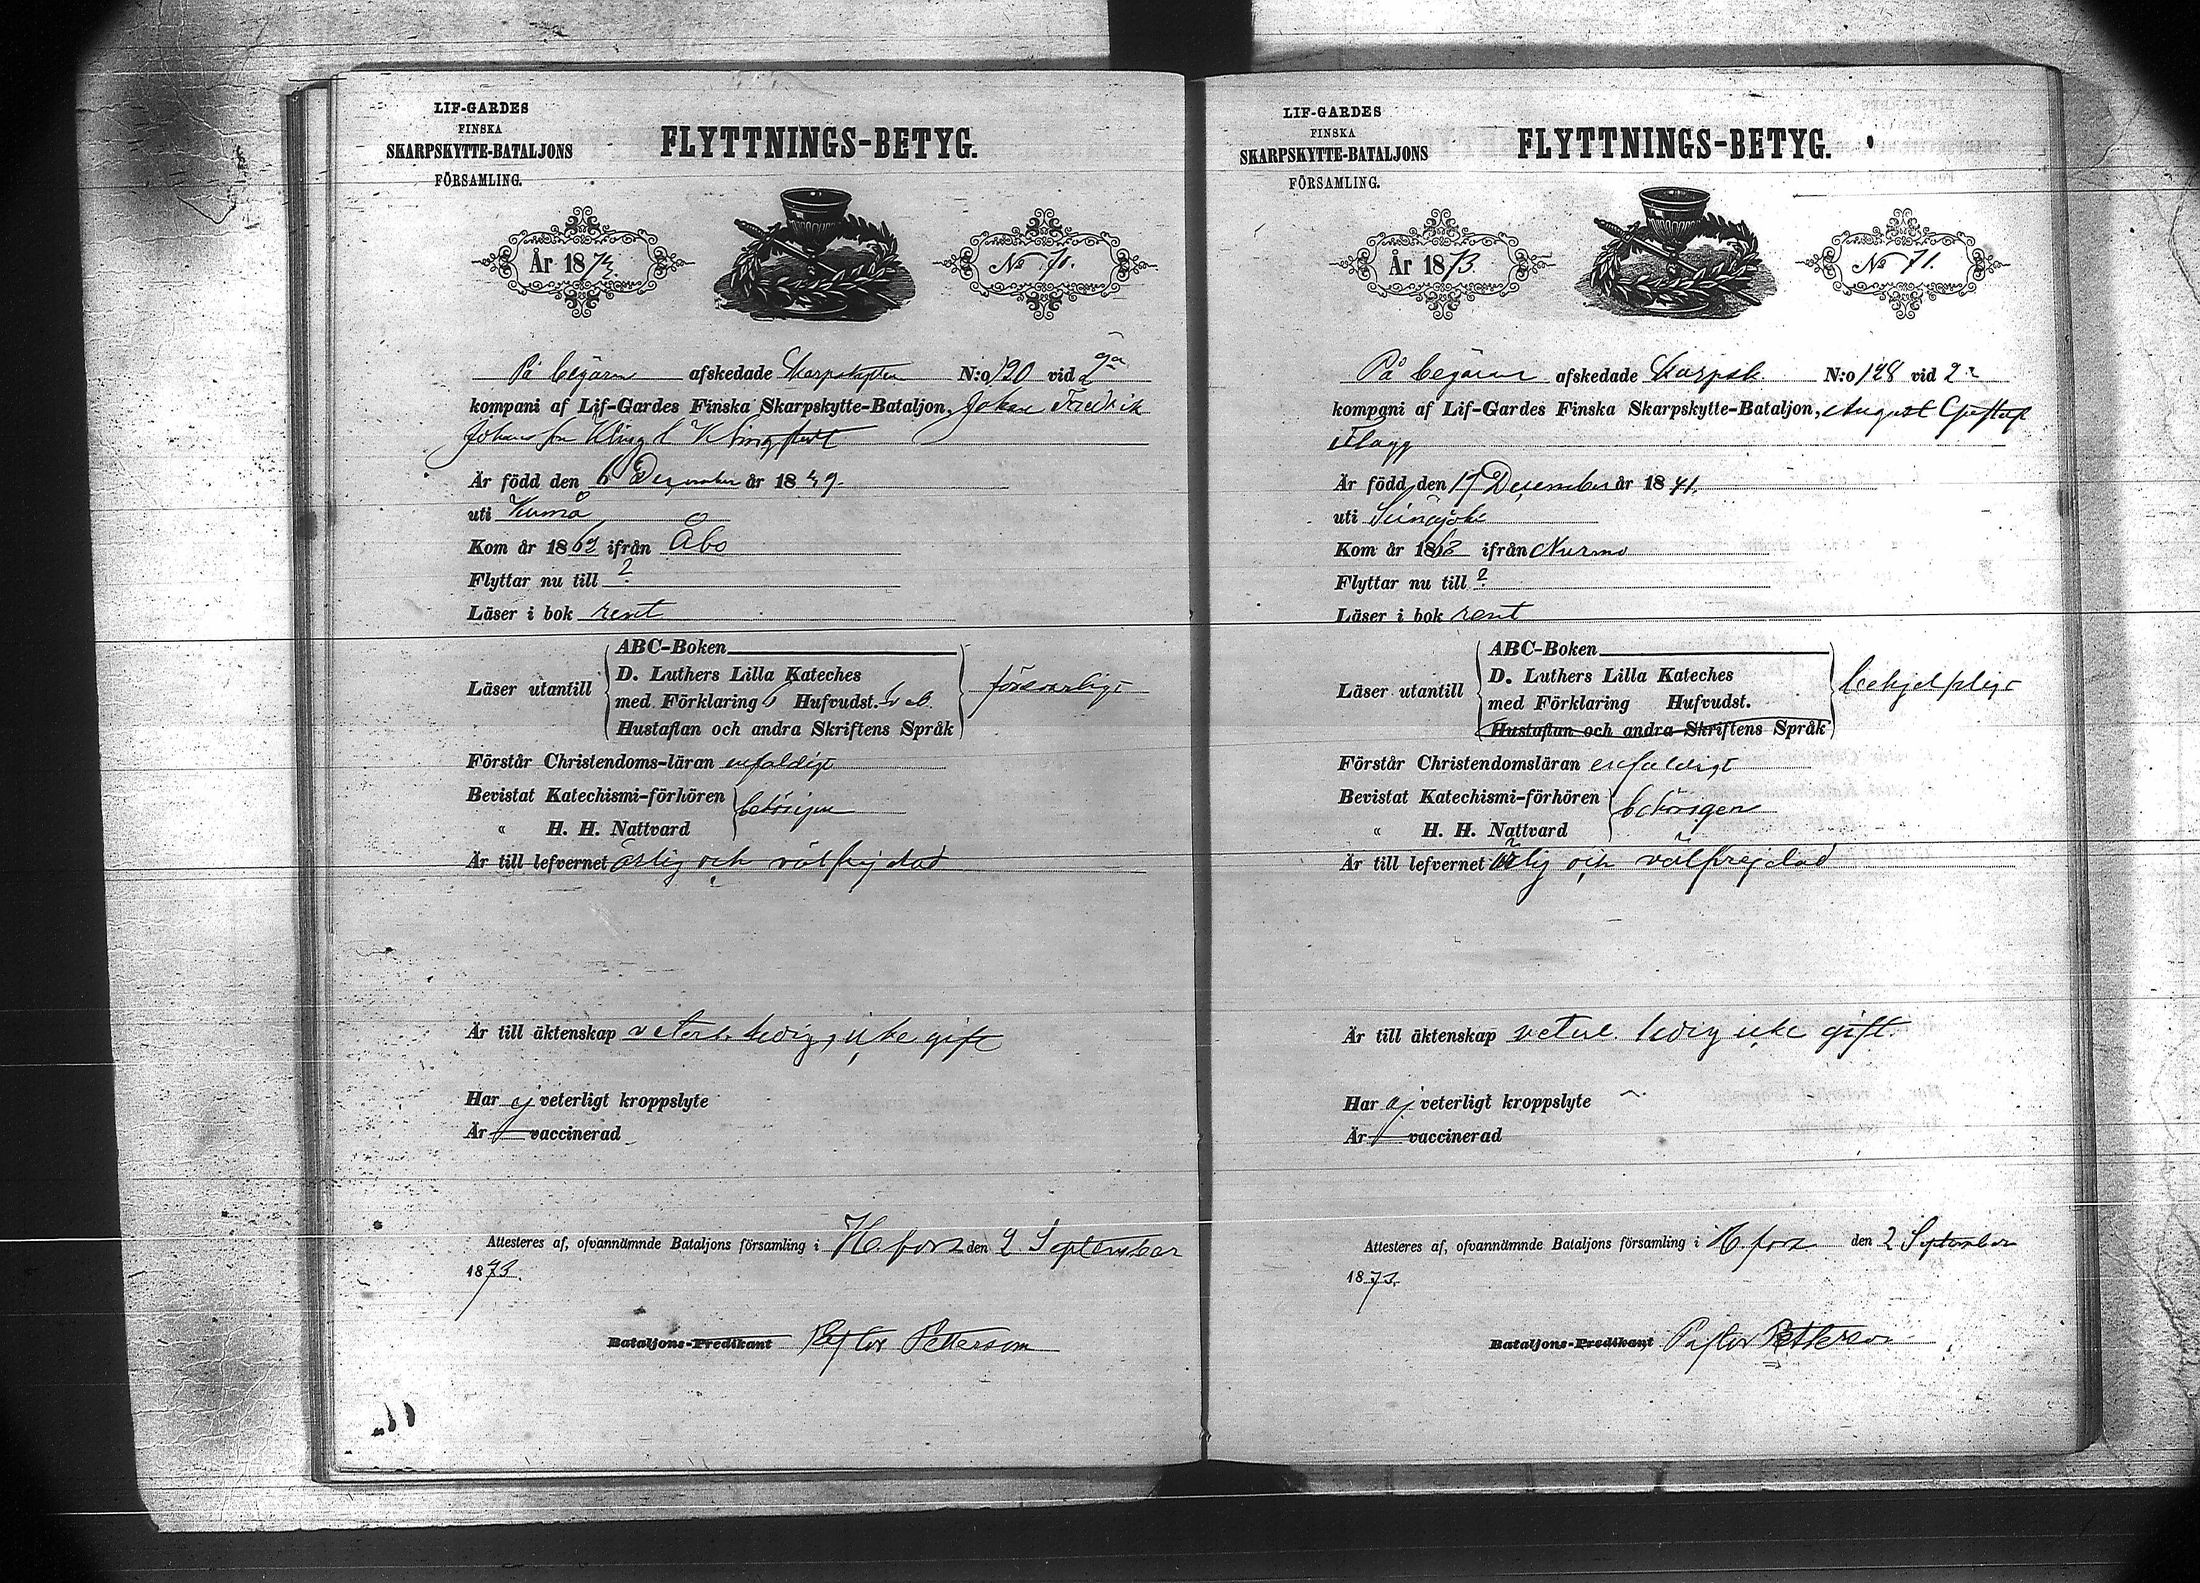 LIF-GARDES
FINSKA
SKARPSKYTTE-BATALJONS
FÖRSAMLING.
FLYTTNINGS-BETYG.
År 1873.
No 70.
På begäran afskedade Skarpskytten N:o 120 vid 2a
kompani af Lif-Gardes Finska Skarpskytte-Bataljon, Johan Fredrik
Johansson Kling l Klingstedt
Är född den 6 December år 1849.
uti Kumå
Kom år 1862 ifrån Åbo
Flyttar nu till ?
Läser i bok rent
Läser utantill
ABC-Boken
D. Luthers Lilla Kateches
med Förklaring 6 Hufvudst.
Hustaflan och andra Skriftens Språk
försvarligt
Förstår Christendoms-läran enfaldigt
Bevistat Katechismi-förhören
« H. H. Nattvard
behörigen
Är till lefvernet ärlig och välfrejdad
Är till äktenskap veterl. ledig, icke gift
Har ej veterligt kroppslyte
Är vaccinerad
Attesteres af, ofvannämnde Bataljons församling i H.fors den 2 September
1873.
Bataljons-Predikant Pastor Petterson
LIF-GARDES
FINSKA
SKARPSKYTTE-BATALJONS
FÖRSAMLING.
FLYTTNINGS-BETYG.
År 1873.
No 71.
På begäran afskedade Skarpsk. N:o 128 vid 2a
kompani af Lif-Gardes Finska Skarpskytte-Bataljon, August Gustaf
Flagg
Är född den 17 December år 1841.
uti Seinäjoki
Kom år 1863 ifrån Nurmo
Flyttar nu till ?
Läser i bok rent
Läser utantill
ABC-Boken
D. Luthers Lilla Kateches
med Förklaring Hufvudst.
Hustaflan och andra Skriftens Språk
behjelpligt
Förstår Christendomsläran enfaldigt
Bevistat Katechismi-förhören
« H. H. Nattvard
behörigen
Är till lefvernet ärlig och välfrejdad
Är till äktenskap veterl. ledig icke gift.
Har ej veterligt kroppslyte
Är vaccinerad
Attesteres af, ofvannämnde Bataljons församling i H.fors den 2 September
1873.
Bataljons-Predikant, Pastor Petterson